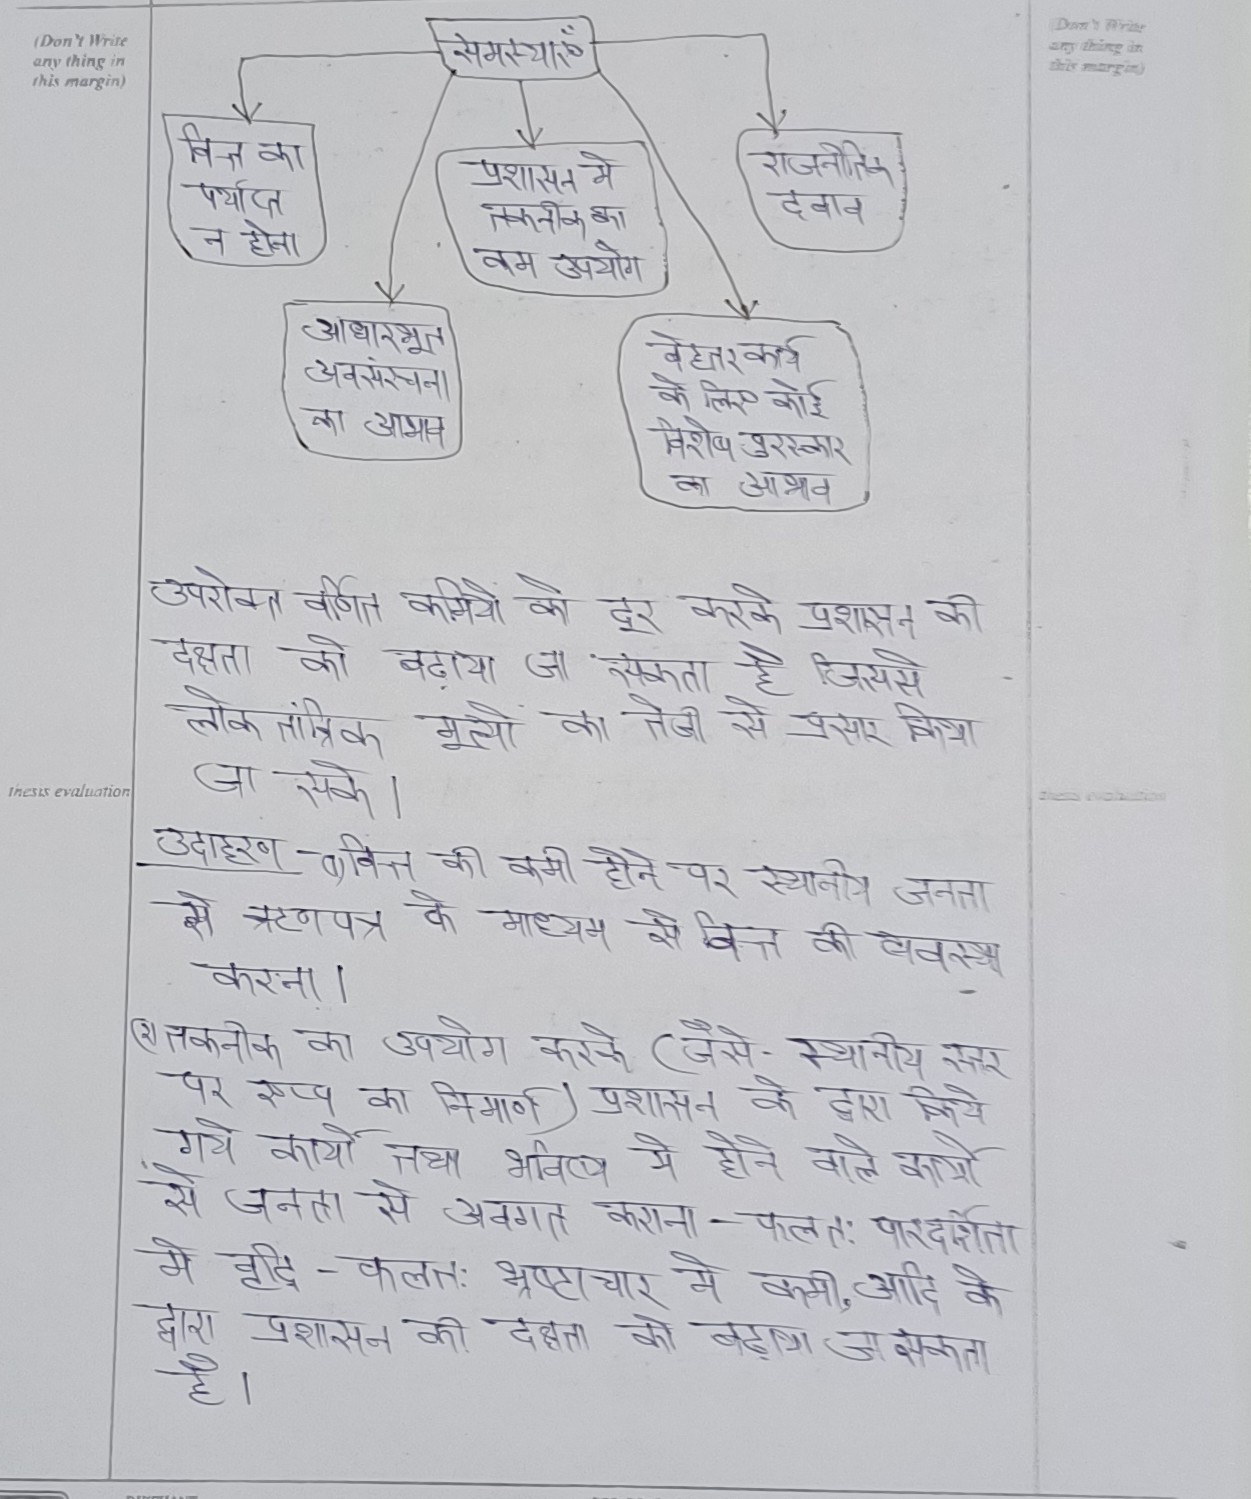 (Don't Write
any thing in
this margin)
(Don't Write
any thing in
this margin)
समस्याएँ
वित्त का
पर्याप्त
न होना
प्रशासन मे
तकनीक का
कम उपयोग
राजनीतिक
दबाव
आधारभूत
अवसंरचना
का आभाव
बेहतर कार्य
के लिए कोई
विशेष पुरस्कार
का आभाव
उपरोक्त वर्णित कमियों को दूर करके प्रशासन की
दक्षता को बढ़ाया जा सकता है जिससे
लोकतांत्रिक मूल्यों का तेजी से प्रसार किया
जा सके।
thesis evaluation
thesis evaluation
उदाहरण - (1) वित्त की कमी होने पर स्थानीय जनता
से ऋणपत्र के माध्यम से वित्त की व्यवस्था
करना।
(2) तकनीक का उपयोग करके (जैसे- स्थानीय स्तर
पर एप्प का निमार्ण) प्रशासन के द्वारा किये
गये कार्यों तथा भविष्य मे होने वाले कार्यों
से जनता से अवगत कराना - फलतः पारदर्शिता
मे वृद्दि - फलतः भ्रष्टाचार मे कमी, आदि के
द्वारा प्रशासन की दक्षता को बढ़ाया जा सकता
है।